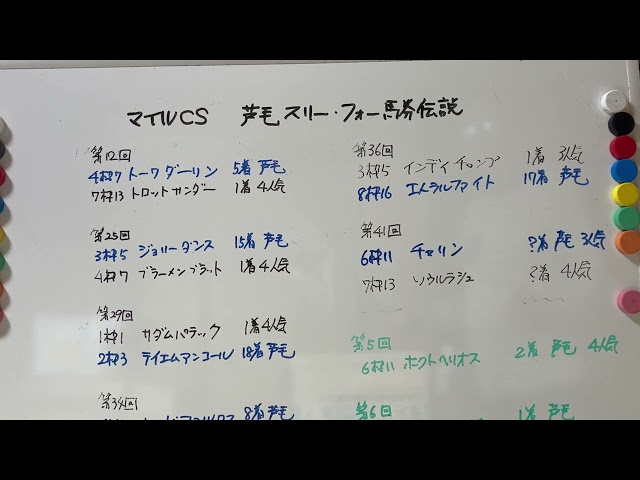 マイルCS 芦毛スリー・フォー馬券伝説
第12回
4枠7 トーワダーリン 5着 芦毛
7枠13 トロットサンダー 1着 4人気
第25回
3枠5 ジョリーダンス 15着 芦毛
4枠7 ブラーメンブラット 1着 4人気
第29回
1枠1 サダムパテック 1着 4人気
2枠3 テイエムアンコール 18着 芦毛
第34回
8着 芦毛
第36回
3枠5 インディチャンプ 1着 3人気
8枠16 エメラルファイト 17着 芦毛
第41回
6枠11 チャリン ?着 芦毛 3人気
7枠13 ソウルラッシュ ?着 4人気
第5回
6枠11 ホクトヘリオス 2着 芦毛 4人気
第6回
1着 芦毛